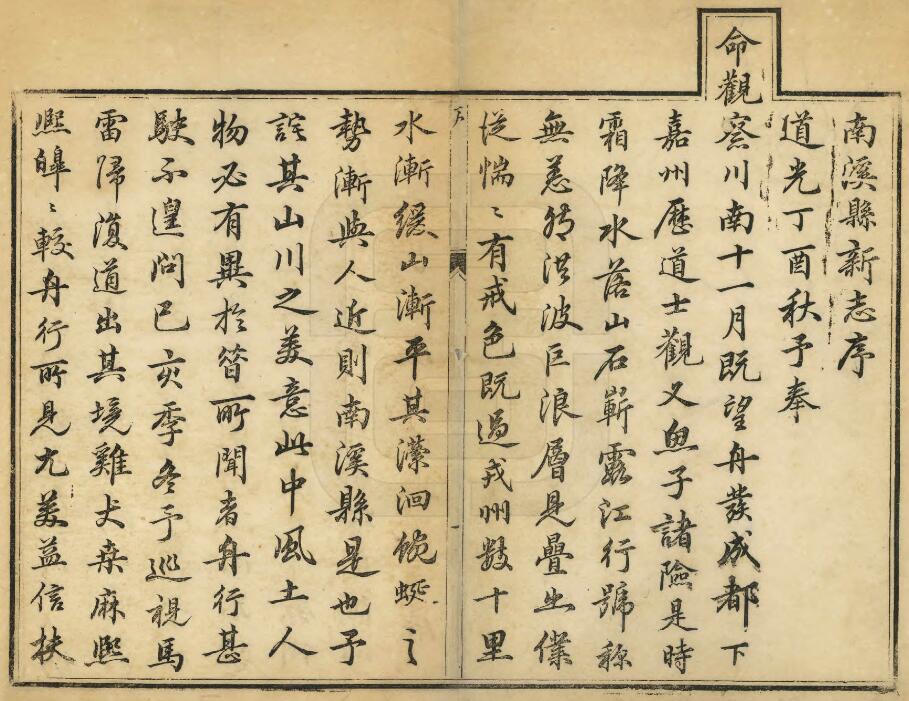 南溪縣新志序
道光丁酉秋予奉
命觀察川南十一月既望舟發成都下
嘉州歷道士觀叉魚子諸險是時
霜降水落山石嶄露江行號稱
無恙然洪波巨浪層見疊出僕
從惴〻有戒色既過戎州數十里
水漸緩山漸平其瀠洄蜿蜒之
勢漸與人近則南溪縣是也予
詫其山川之美意此中風土人
物必有異於昔所聞者舟行甚
駛不遑問已亥季冬予巡視馬
雷歸復道出其境雞犬桑麻熙
熙皞〻較舟行所見尤美益信扶